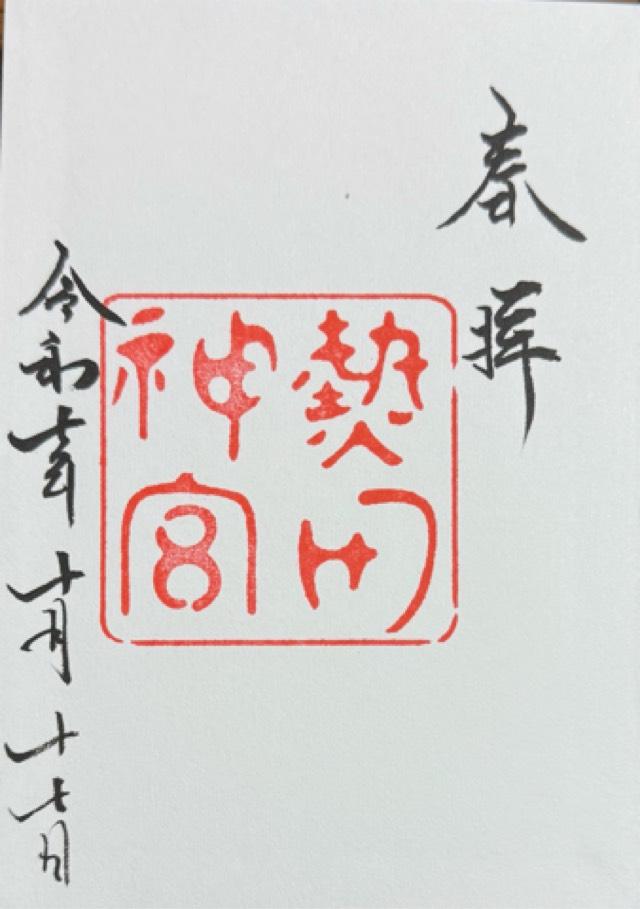 奉拝
熱田
神宮
令和七年十月十七日